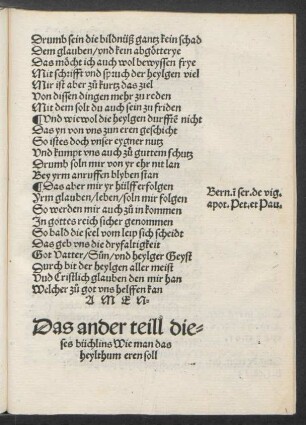 Drumb sein die bildnüß gantz kein schad
Dem glauben/vnd kein abgötterye
Das möcht ich auch wol bewyssen frye
Mit schrifft vnd spruch der heylgen viel
Mir ist aber zů kurtz das ziel
Von dissen dingen mehr zu reden
Mit dem solt du auch sein zu friden
¶Vnd wiewol die heylgen durffen nicht
Das yn von vns zun eren geschicht
So istes doch vnser eygner nutz
Vnd kumpt vns auch zů guttem schutz
Drumb soln mir von yr ehr nit lan
Bey yrm anruffen blyben stan
¶Das aber mir yr hülff erfolgen
Yrm glauben/leben/soln mir folgen
So werden mir auch zů in kommen
In gottes reich sicher genommen
So bald die seel vom leip sich scheidt
Das geb vns die dryfaltigkeit
Got Vatter/Sün/vnd heylger Geyst
Durch bit der heylgen aller meist
Vnd Cristlich glauben den mir han
Welcher zů got vns helffen kan
AMEN.
Bern. ī ser. de vig.
apot. Pet. et Pau.
Das ander teill die-
ses büchlins Wie man das
heylthum eren soll